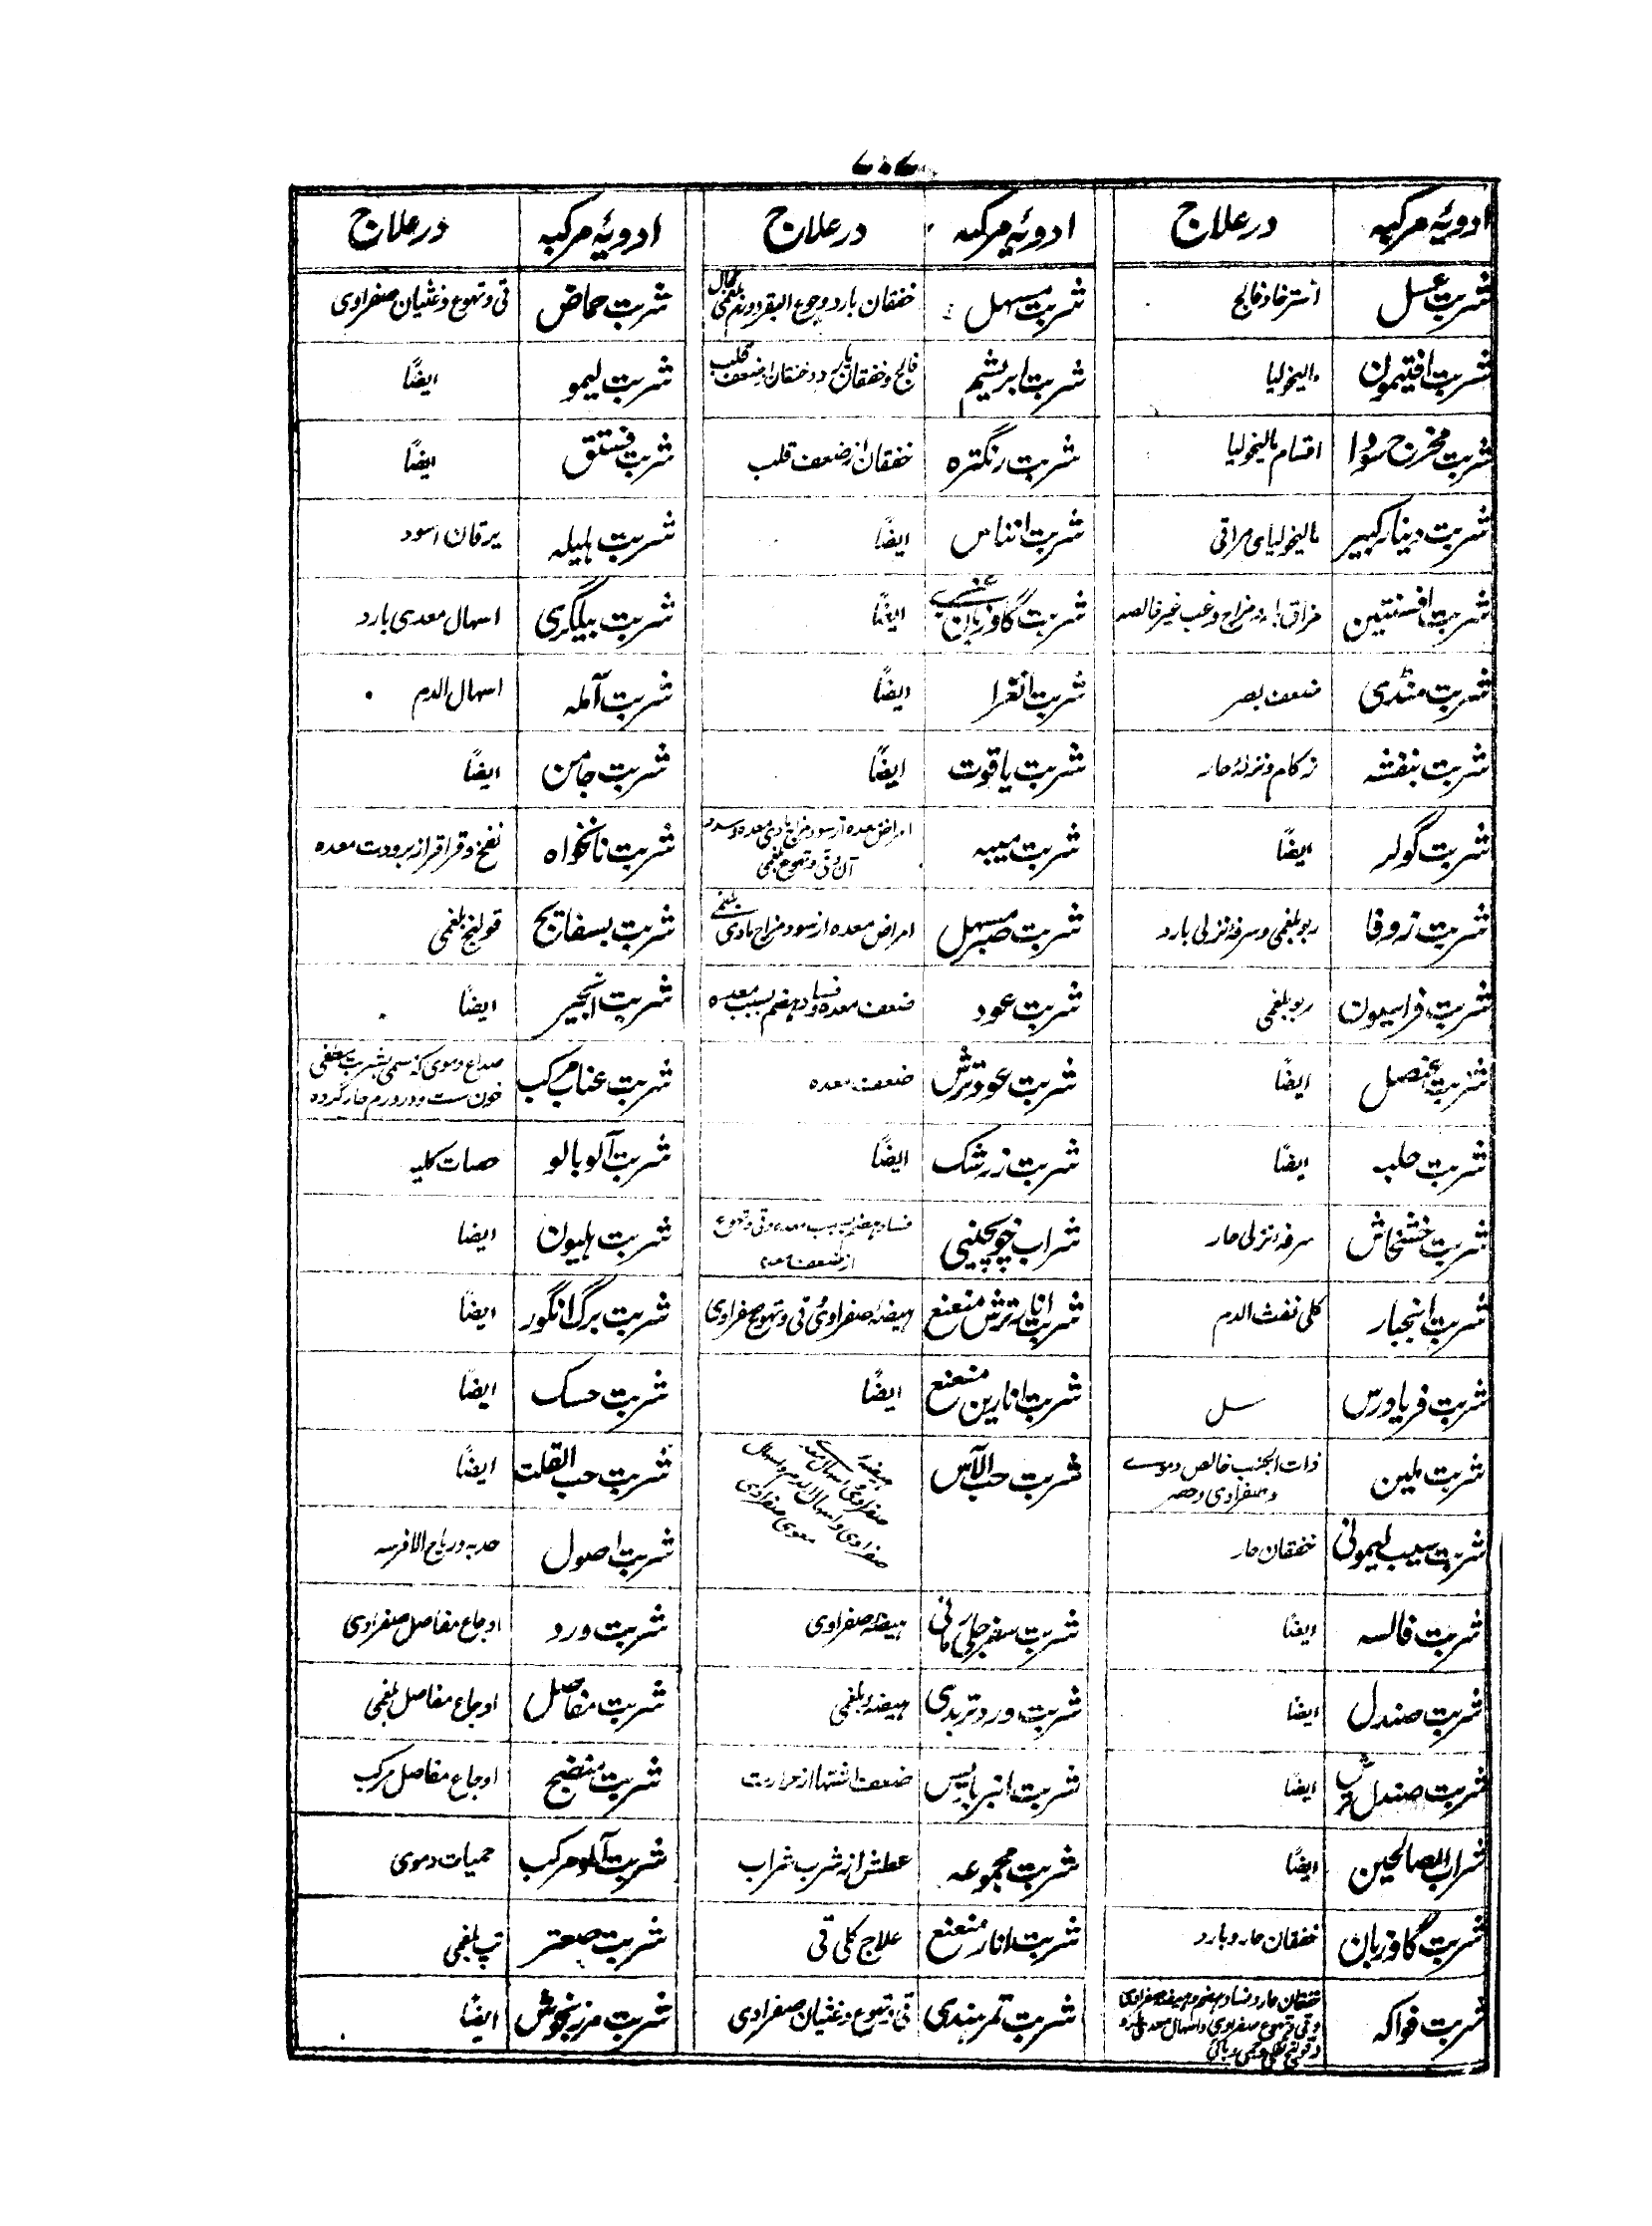 ۷۰۷
ادویۂ مرکبہ در علاج ادویۂ مرکبہ در علاج ادویۂ مرکبہ در علاج
شربت عسل استرخا و فالج شربت مسہل خفقان بارد و وجع شربت حماض قی و تہوع و غثیان صفراوی
شربت افتیمون مالیخولیا شربت ابریشم فالج و خفقان شربت لیمو ایضًا
شربت مخرج سودا اقسام مالیخولیا شربت رنگترہ خفقان از ضعف قلب شربت فستق ایضًا
شربت دینار کبیر مالیخولیای مراقی شربت انناس ایضًا شربت ہلیلہ یرقان اسود
شربت افسنتین مراق و غب غیر خالصہ شربت گاوزبان ایضًا شربت بیلگری اسہال معدی بارد
شربت منڈی ضعف بصر شربت انغرا ایضًا شربت آملہ اسہال الدم
شربت بنفشہ زکام و نزلۂ حار شربت یاقوت ایضًا شربت جامن ایضًا
شربت گولر ایضًا شربت میبہ امراض معدہ از سوء مزاج مادی معدہ آن و قی و تہوع بلغمی شربت نانخواہ نفخ و قراقر از برودت معدہ
شربت زوفا ربو بلغمی و سرفۂ نزلی بارد شربت صبر مسہل امراض معدہ از سوء مزاج مادی بلغمی شربت بسفایج قولنج بلغمی
شربت فراسیون ربو بلغمی شربت عود ضعف معدہ و فساد ہضم بسبب معدہ شربت انجیر ایضًا
شربت عنصل ایضًا شربت عود ترش ضعف معدہ شربت عناب مرکب صداع دموی کہ مسمی بشربت مطفی خون ست و در ورم حار گردہ
شربت حلبہ ایضًا شربت زرشک ایضًا شربت آلوبالو حصات کلیہ
شربت خشخاش سرفۂ نزلی حار شراب چوبچینی فساد ہضم بسبب معدہ و قی و تہوع از ضعف معدہ شربت ہلیون ایضا
شربت انجبار کلی نفث الدم شربت انار ترش منعنع ہیضۂ صفراوی و قی و تہوع صفراوی شربت برگ انگور ایضًا
شربت فریادرس سل شربت انارین منعنع ایضًا شربت حسک ایضًا
شربت ملین ذات الجنب خالص دموے و صفراوی شربت حب الآس ہیضۂ صفراوی و اسہال الدم شربت حب القلت ایضًا
شربت سیب لیمونی خفقان حار شربت اصول حدبہ و ریاح الافرسہ
شربت فالسہ ایضًا شربت سفرجلی ہیضۂ صفراوی شربت ورد اوجاع مفاصل صفراوی
شربت صندل ایضًا شربت ورد تربدی ہیضۂ بلغمی شربت مفاصل اوجاع مفاصل بلغمی
شربت صندل ترش ایضًا شربت انبرباریس ضعف اشتہا از حرارت شربت منضج اوجاع مفاصل مرکب
شراب الصالحین ایضًا شربت مجموعہ عطش از شرب شراب شربت آلو مرکب حمیات دموی
شربت گاوزبان خفقان حار و بارد شربت انار منعنع علاج کلی قی شربت صعتر تپ بلغمی
شربت فواکہ خفقان حار و فساد ہضم و ہیضۂ صفراوی و قی و تہوع صفراوی و اسہال معدی شربت تمر ہندی قی و تہوع و غثیان صفراوی شربت مرزنجوش ایضًا